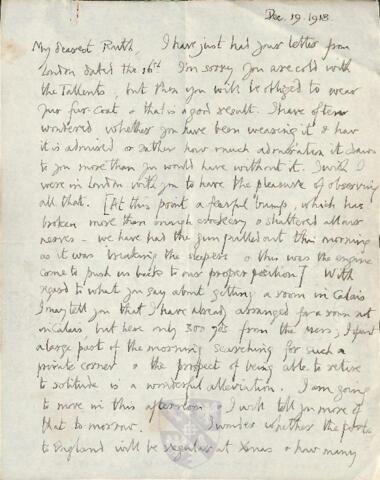 Dec. 19. 1918.
My dearest Ruth, I have just had your letter from
London dated the 16th I'm sorry you are cold with
the Tallents, but then you will be obliged to wear
your fur-coat & that is a good result. I have often
wondered whether you have been wearing it & how
it is admired or rather how much admiration it draws
to you more than you would have without it. I wish I
were in London with you to have the pleasure of observing
all that. [At this point a fearful bump, which has
broken more than enough crockery & shattered all our
nerves - we have had the gun pulled out this morning
as it was breaking the sleepers & this was the engine
come to push us back to our proper position] With
regard to what you say about getting a room in Calais
I may tell you that I have already arranged for a room not
in Calais but here only 300 yds from the mess; I spent
a large part of the morning searching for such a
private corner & the prospect of being able to retire
to solitude is a wonderful alleviation. I am going
to move in this afternoon. I will tell you more of
that to morrow. I wonder whether the posts
to England will be regular at Xmas & how many